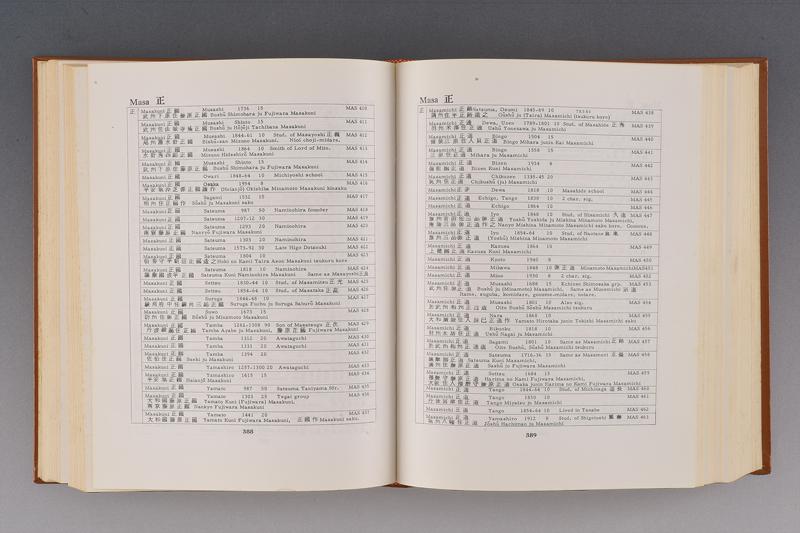 Masa 正
正
Masakuni 正國 Musashi 1736 15 MAS 410
武州下原住藤原正國 Bushū Shimohara ju Fujiwara Masakuni
Masakuni 正國 Musashi Shinto 15 MAS 411
Bushū ju Hōjōji Tachibana Masakuni
Masakuni 正國 Musashi 1844-61 10 Stud. of Masayoshi 正義 MAS 412
Masakuni 正國 Musashi 1864 10 Smith of Lord of Mito. MAS 413
Masakuni 正國 Musashi Shinto 15 MAS 414
Bushū Shimohara ju Fujiwara Masakuni
Masakuni 正國 Owari 1848-64 10 Michiyoshi school MAS 415
Masakuni 正國 Osaka 1994 8 MAS 416
Masakuni 正國 Sagami 1532 15 MAS 417
相州住正國作 Sōshū ju Masakuni saku
Masakuni 正國 Satsuma 987 50 Naminohira founder MAS 418
Masakuni 正國 Satsuma 1207-12 30 MAS 419
Masakuni 正國 Satsuma 1293 20 Naminohira MAS 420
Nankyo Fujiwara Masakuni
Masakuni 正國 Satsuma 1303 20 Naminohira MAS 421
Masakuni 正國 Satsuma 1573-92 50 Late Higo Dotanuki MAS 422
Masakuni 正國 Satsuma 1804 10 MAS 423
Masakuni 正國 Satsuma 1818 10 Naminohira MAS 424
Satsuma Kuni Naminohira Masakuni Same as Masayoshi
Masakuni 正國 Settsu 1830-44 10 Stud. of Masamitsu 正光 MAS 425
Masakuni 正國 Settsu 1854-64 10 Stud. of Masataka 正高 MAS 426
Masakuni 正國 Suruga 1846-48 10 MAS 427
Masakuni 正國 Suwo 1673 15 MAS 428
Bōshū ju Minamoto Masakuni
Masakuni 正國 Tamba 1281-1300 90 Son of Masatsugu 正次 MAS 429
Masakuni 正國 Tamba 1312 20 Awataguchi MAS 430
Masakuni 正國 Tamba 1331 20 Awataguchi MAS 431
Masakuni 正國 Tamba 1394 20 MAS 432
Masakuni 正國 Yamashiro 1257-1300 20 Awataguchi MAS 433
Masakuni 正國 Yamashiro 1615 15 MAS 434
Masakuni 正國 Yamato 987 50 Satsuma Taniyama Str. MAS 435
Masakuni 正國 Yamato 1303 25 Tegai group MAS 436
大和國藤原正國 Yamato Kuni Fujiwara Masakuni,
南京藤原正國 Nankyo Fujiwara Masakuni
Masakuni 正國 Yamato 1441 20 MAS 437
大和國藤原正國 Yamato Kuni Fujiwara Masakuni, 正國作 Masakuni saku.
388
Masa 正
Masamichi 正路 Satsuma, Osumi 1845-69 10 MAS 438
Ōshū ju (Taira) Masamichi (tsukuru kore)
Masamichi 正道 Dewa, Uzen 1789-1801 10 Stud. of Masahide 正秀 MAS 439
Ushū Yonezawa ju Masamichi
Masamichi 正道 Bingo 1504 15 MAS 440
Bingo Mihara junin Kai Masamichi
Masamichi 正道 Bingo 1558 15 MAS 441
三原住正道 Mihara ju Masamichi
Masamichi 正道 Bizen 1934 8 MAS 442
備前國正道 Bizen Kuni Masamichi
Masamichi 正道 Chikuzen 1335-45 20 MAS 443
Chikushū (ju) Masamichi
Masamichi 正道 Dewa 1818 10 Masahide school MAS 444
Masamichi 正道 Echigo, Tango 1830 10 2 char. sig. MAS 445
Masamichi 正道 Echigo 1864 10 MAS 446
Masamichi 正道 Iyo 1848 10 Stud. of Hisamichi 久道 MAS 447
Masamichi 正道 Iyo 1854-64 10 Stud. of Naotane 直胤 MAS 448
Masamichi 正道 Kazusa 1864 10 MAS 449
上總國正道 Kazusa Kuni Masamichi
Masamichi 正道 Kozuke 1940 8 MAS 450
Masamichi 正道 Mikawa 1848 10 源正道 Minamoto Masamichi MAS451
Masamichi 正道 Mino 1930 8 2 char. sig. MAS 452
Masamichi 正道 Musashi 1688 15 Echizen Shimosaka grp. MAS 453
Bushū ju (Minamoto) Masamichi, Same as Masamichi
Masamichi 正道 Musashi 1801 10 Also sig. MAS 454
Oite Bushū Masamichi tsukuru
Masamichi 正道 Nara 1868 10 MAS 455
Masamichi 正道 Rikuoku 1818 10 MAS 456
Masamichi 正道 Sagami 1801 10 Same as Masamichi 正路 MAS 457
Masamichi 正道 Satsuma 1716-36 15 Same as Masamori 正盛 MAS 458
薩摩國正道 Satsuma Kuni Masamichi
薩州住藤原正道 Sasshū ju Fujiwara Masamichi
Masamichi 正道 Settsu 1684 15 MAS 459
播磨守藤原正道 Harima no Kami Fujiwara Masamichi,
大坂住人播磨守藤原正道 Osaka junin Harima no Kami Fujiwara Masamichi
Masamichi 正道 Tango 1844-64 10 Stud. of Michinaga 道長 MAS 460
Masamichi 正道 Tango 1850 10 MAS 461
丹後宮津住正道 Tango Miyatsu ju Masamichi
Masamichi 正道 Tango 1854-64 10 Lived in Tanabe MAS 462
Masamichi 正道 Yamashiro 1912 9 Stud. of Shigetoshi MAS 463
Jōshū Hachiman ju Masamichi
389